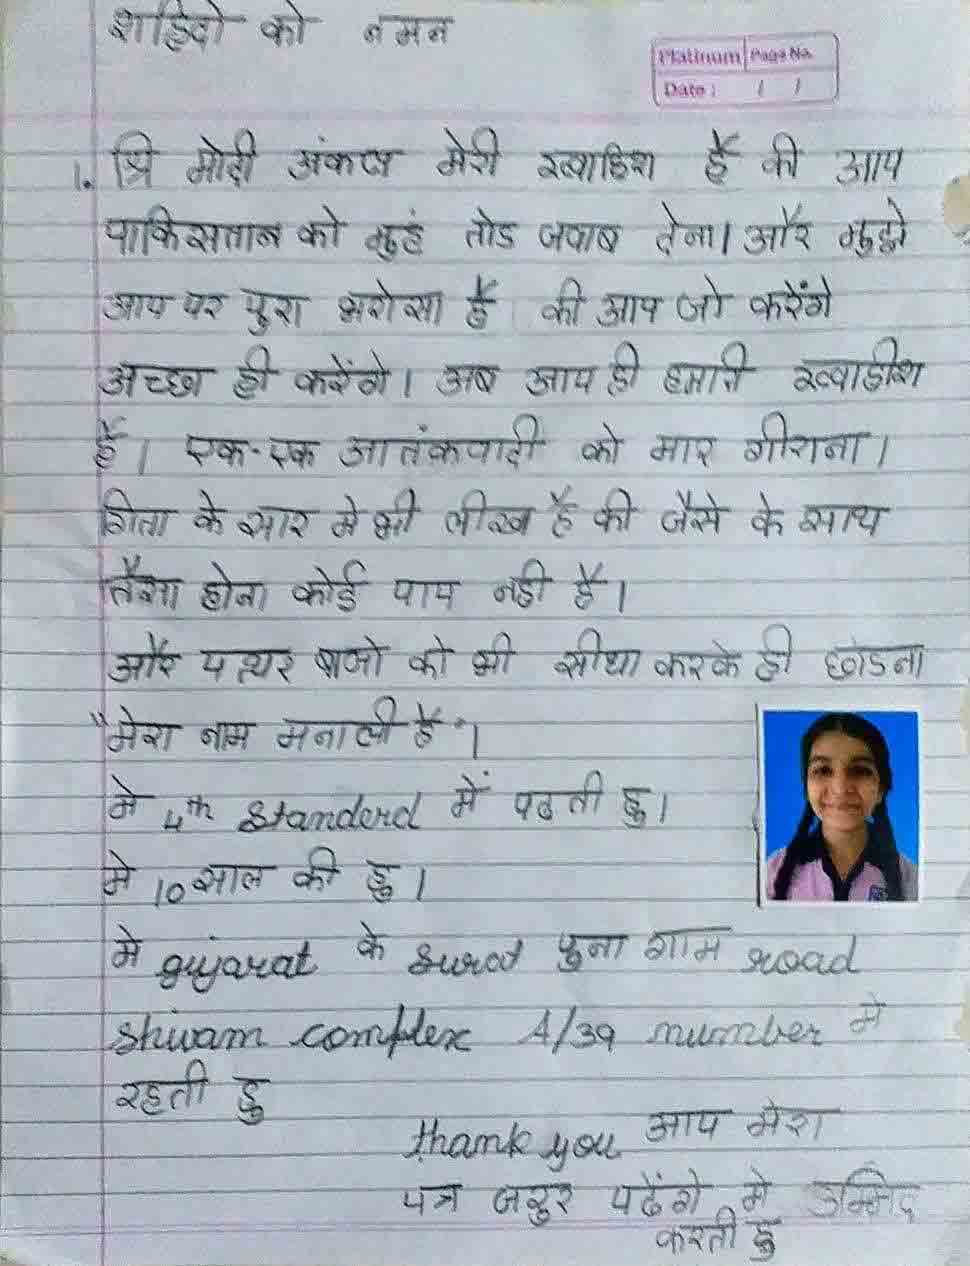 शहिदो को नमन
Platinum Page No.
Date : / /
1. श्रि मोदी अंकल मेरी ख्वाहिश है की आप
पाकिसतान को मुहं तोड जवाब देना। और मुझे
आप पर पुरा भरोसा है की आप जो करेंगे
अच्छा ही करेंगे। अब आप ही हमारी ख्वाहीश
है। एक-एक आतंकवादी को मार गीराना।
गिता के सार मे भी लीख है की जैसे के साथ
तैसा होना कोई पाप नही है।
और पत्थर बाजो को भी सीधा करके ही छोडना
"मेरा नाम मनाली है"।
मे 4th standerd में पढती हु।
मे 10 साल की हु।
मे gujarat के surat पुना गाम road
shivam complex A/39 number मे
रहती हु
thank you आप मेरा
पत्र जरुर पढेंगे मे उम्मिद
करती हु